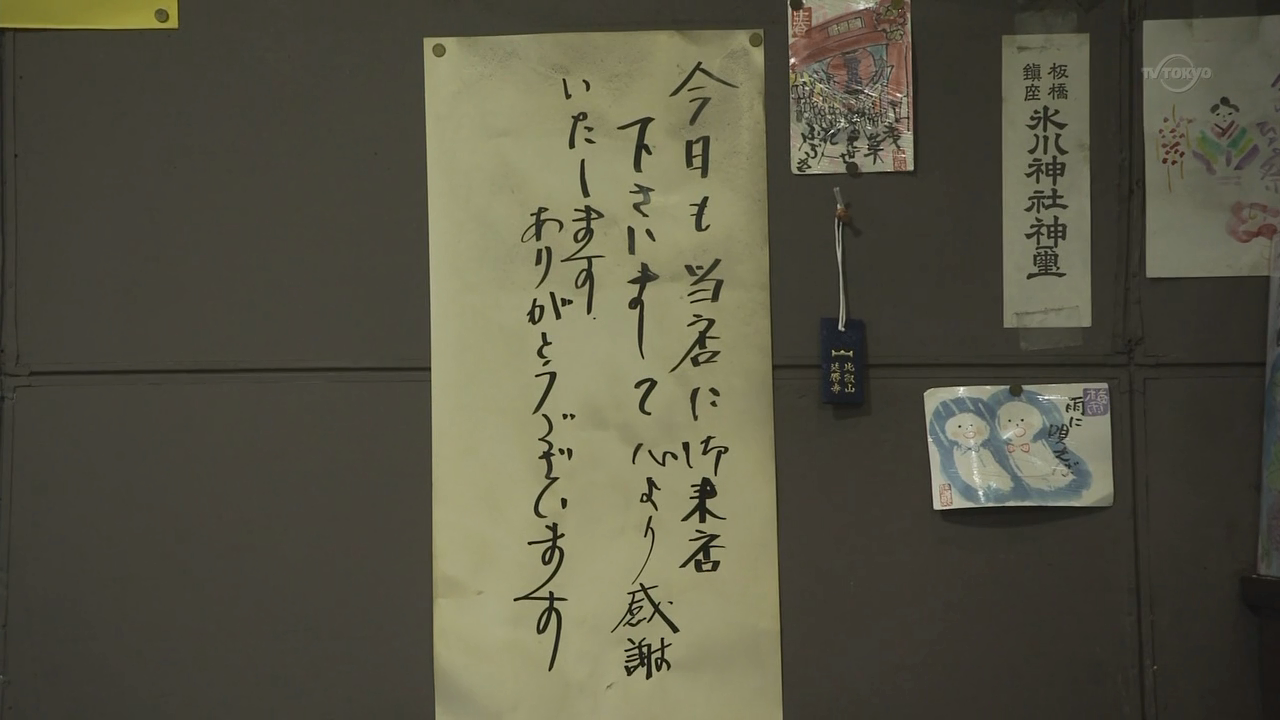 今日も当店に御来店
下さいまして心より感謝
いたします
ありがとうございます
板橋
鎮座
氷川神社神璽
比叡山
延暦寺
雨に
TV TOKYO